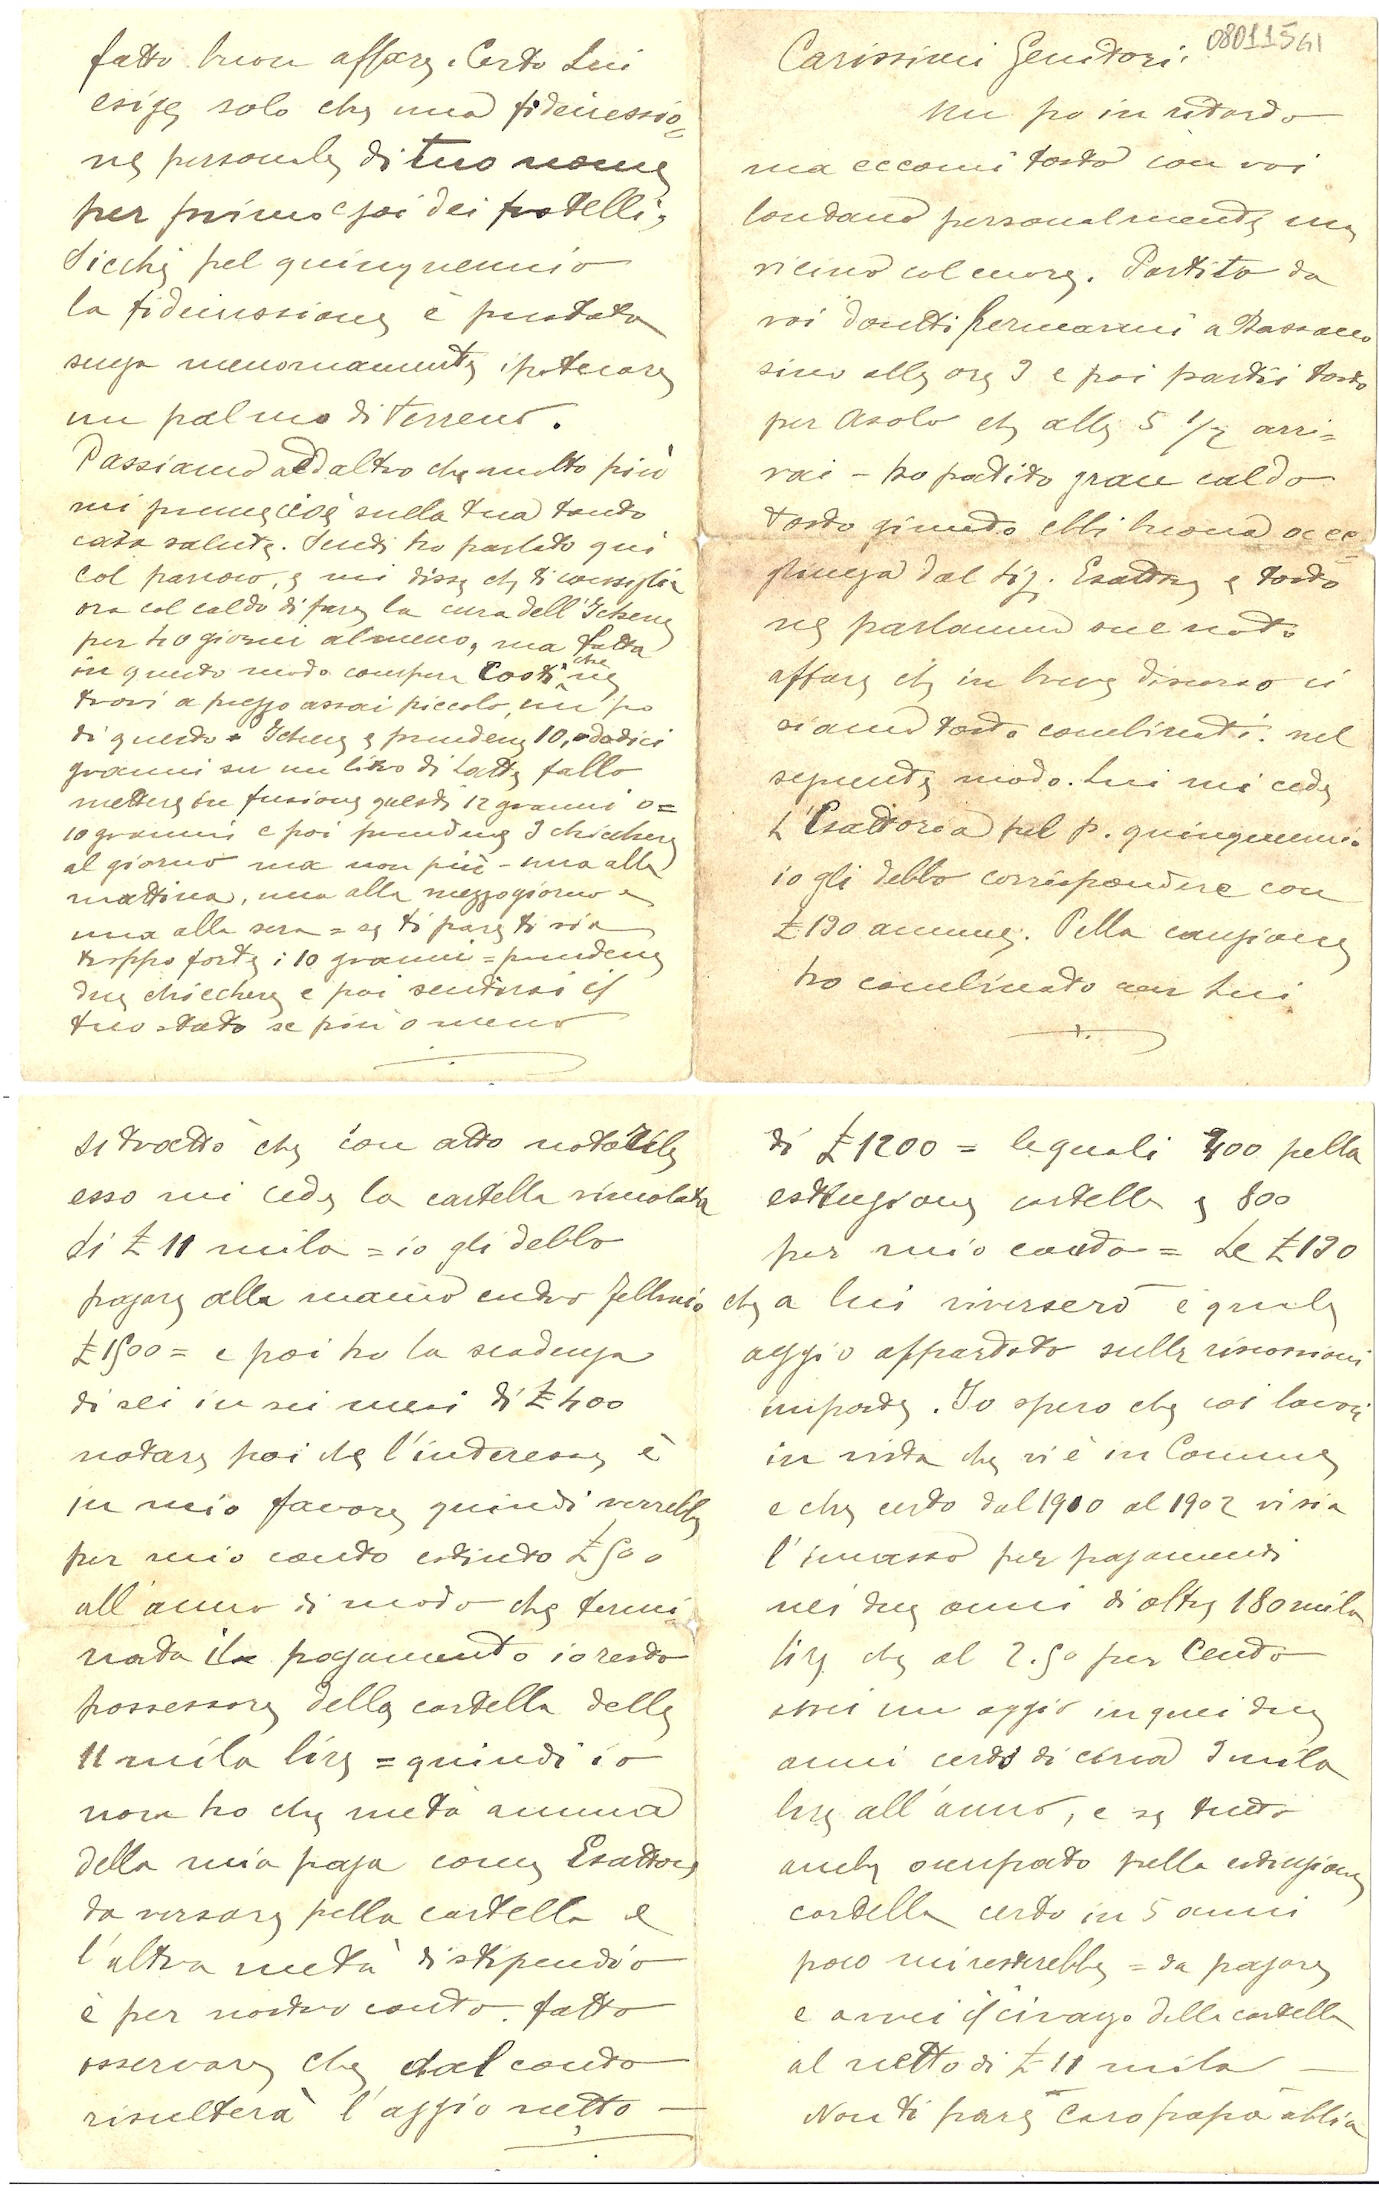 08011541
Carissimi Genitori.
Un po in ritardo
ma eccomi tosto con voi
lontano personalmente ma
vicino col cuore. Partito da
voi dovetti fermarmi a Bassano
sino alle ore 3 e poi partii tosto
per Asolo che alle 5 1/2 arri=
vai - ho patito gran caldo
tosto giunto ebbi buona acco=
glienza dal Sig. Esattore e tosto
ne parlammo sul noto
affare che in breve discorso ci
siamo tosto combinati. nel
seguente modo. Lui mi cede
l'Esattoria pel p. quinquennio
io gli debbo corrispondere con
£ 190 annue. Pella cauzione
ho combinato con Lui
si trattò che con atto notarile
esso mi cede la cartella vincolata
di £ 11 mila = io gli debbo
pagare alla mano entro febbraio
£ 1500 = e poi ho la scadenza
di sei in sei mesi di £ 400
notare poi che l'interesse è
in mio favore quindi verrebbe
per mio conto estinto £ 500
all'anno di modo che termi=
nata il pagamento io resto
possessore della cartella delle
11 mila lire = quindi io
non ho che metà annua
della mia paga come Esattore
da versare pella cartella e
l'altra metà di stipendio
è per nostro conto. fatto
osservare che dal conto
risulterà l'aggio netto
di £ 1200 = le quali 400 pella
estinzione cartella e 800
per mio conto = Le £ 190
che a lui riverserò è quale
aggio appartato sulle riscossioni
imposte. Io spero che coi lavori
in vista che vi è in Comune
e che certo dal 1900 al 1902 vi sia
l'incasso per pagamenti
nei due anni di oltre 180 mila
lire che al 2.50 per cento
avrei un aggio in quei due
anni certo di circa 3 mila
lire all'anno, e se tutto
anche occupato pella estinzione
cartella certo in 5 anni
poco mi resterebbe = da pagare
e avrei il civanzo della cartella
al netto di £ 11 mila
Non ti pare caro papà abbia
fatto buon affare. Certo Lui
esige solo che una fideiussio=
ne personale di tuo nome
per primo e poi dei fratelli,
Sicchè pel quinquennio
la fideiussione è prestata
senza menomamente ipotecare
un palmo di terreno.
Passiamo ad altro che molto più
mi preme cioè sulla tua tanto
cara salute. Senti ho parlato qui
col parroco, e mi disse che ti consiglia
ora col caldo di fare la cura dell'Ichene
per 40 giorni almeno, ma fatta
in questo modo compera costì che ne
trovi a prezzo assai piccolo, un po
di questo = Ichene e prendene 10, o dodici
grammi su un litro di latte fallo
mettere in fusione questi 12 grammi o=
10 grammi e poi prendene 3 chicchere
al giorno ma non più - una alla
mattina, una alla mezzogiorno e
una alla sera = se ti pare ti sia
troppo forte i 10 grammi = prendene
due chicchere e poi sentirai il
tuo stato se più o meno